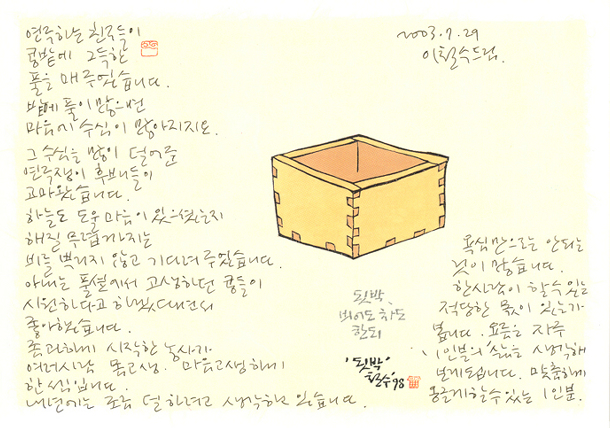 연극하는 친구들이
콩밭에 그득한
풀을 매주었습니다.
밭에 풀이 많으면
마음에 수심이 많아지지요.
그 수심을 많이 덜어준
연극쟁이 후배들이
고마웠습니다.
하늘도 도울 마음이 있으셨는지
해질 무렵까지는
비를 뿌리지 않고 기다려주었습니다.
아내는 풀섶에서 고생하던 콩들이
시원하다고 하겠다면서
좋아했습니다.
좀 과하게 시작한 농사가
여러사람 몸고생. 마음고생하게
한 셈입니다.
내년에는 조금 덜 하려고 생각하고 있습니다.
2003.7.29
이철수드림.
됫박.
비어도 차도
한되
'됫박'
철수 '98
욕심만으로는 안되는
것이 많습니다.
한사람이 할 수 있는
적당한 몫이 있는가
봅니다. 요즘은 자주
'1인분의 삶'을 생각해
보게됩니다. 맞춤하게
옹글게할 수 있는 1인분.